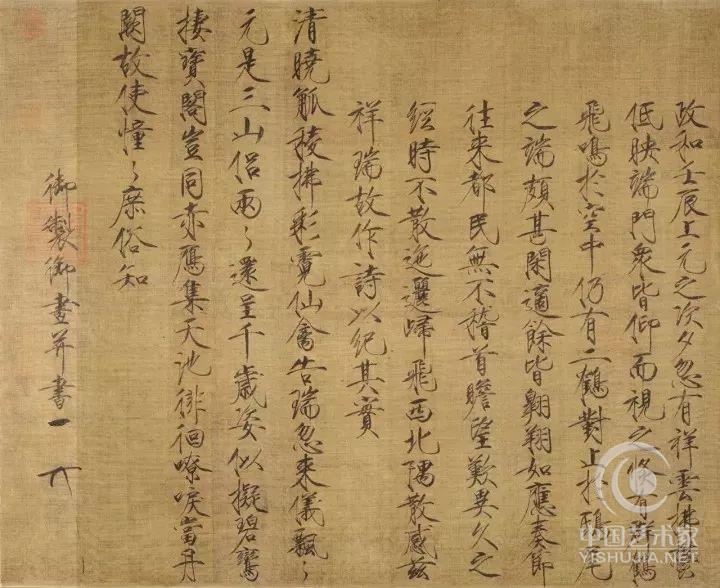 政和壬辰上元之次夕忽有祥雲拂鬱
低映端門衆皆仰而視之倏有羣鶴
飛鳴於空中仍有二鶴對止於鴟尾
之端頗甚閑適餘皆翺翔如應奏節
往來都民無不稽首瞻望歎異久之
經時不散迤邐歸飛西北隅散感茲
祥瑞故作詩以紀其實
清曉觚稜拂彩霓仙禽告瑞忽來儀飄〻
元是三山侶兩〻還呈千歲姿似擬碧鸞
棲寶閣豈同赤鴈集天池徘徊嘹唳當丹
闕故使憧〻庶俗知
御製御畫并書
中国艺术家
YISHUJIA.NET